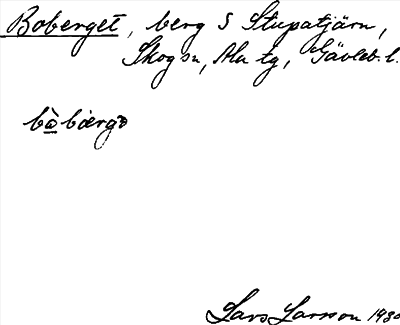 Boberget, berg S Stupatjärn,
Skog sn, Ala tg, Gävleb. l.
Lars Larsson 1930